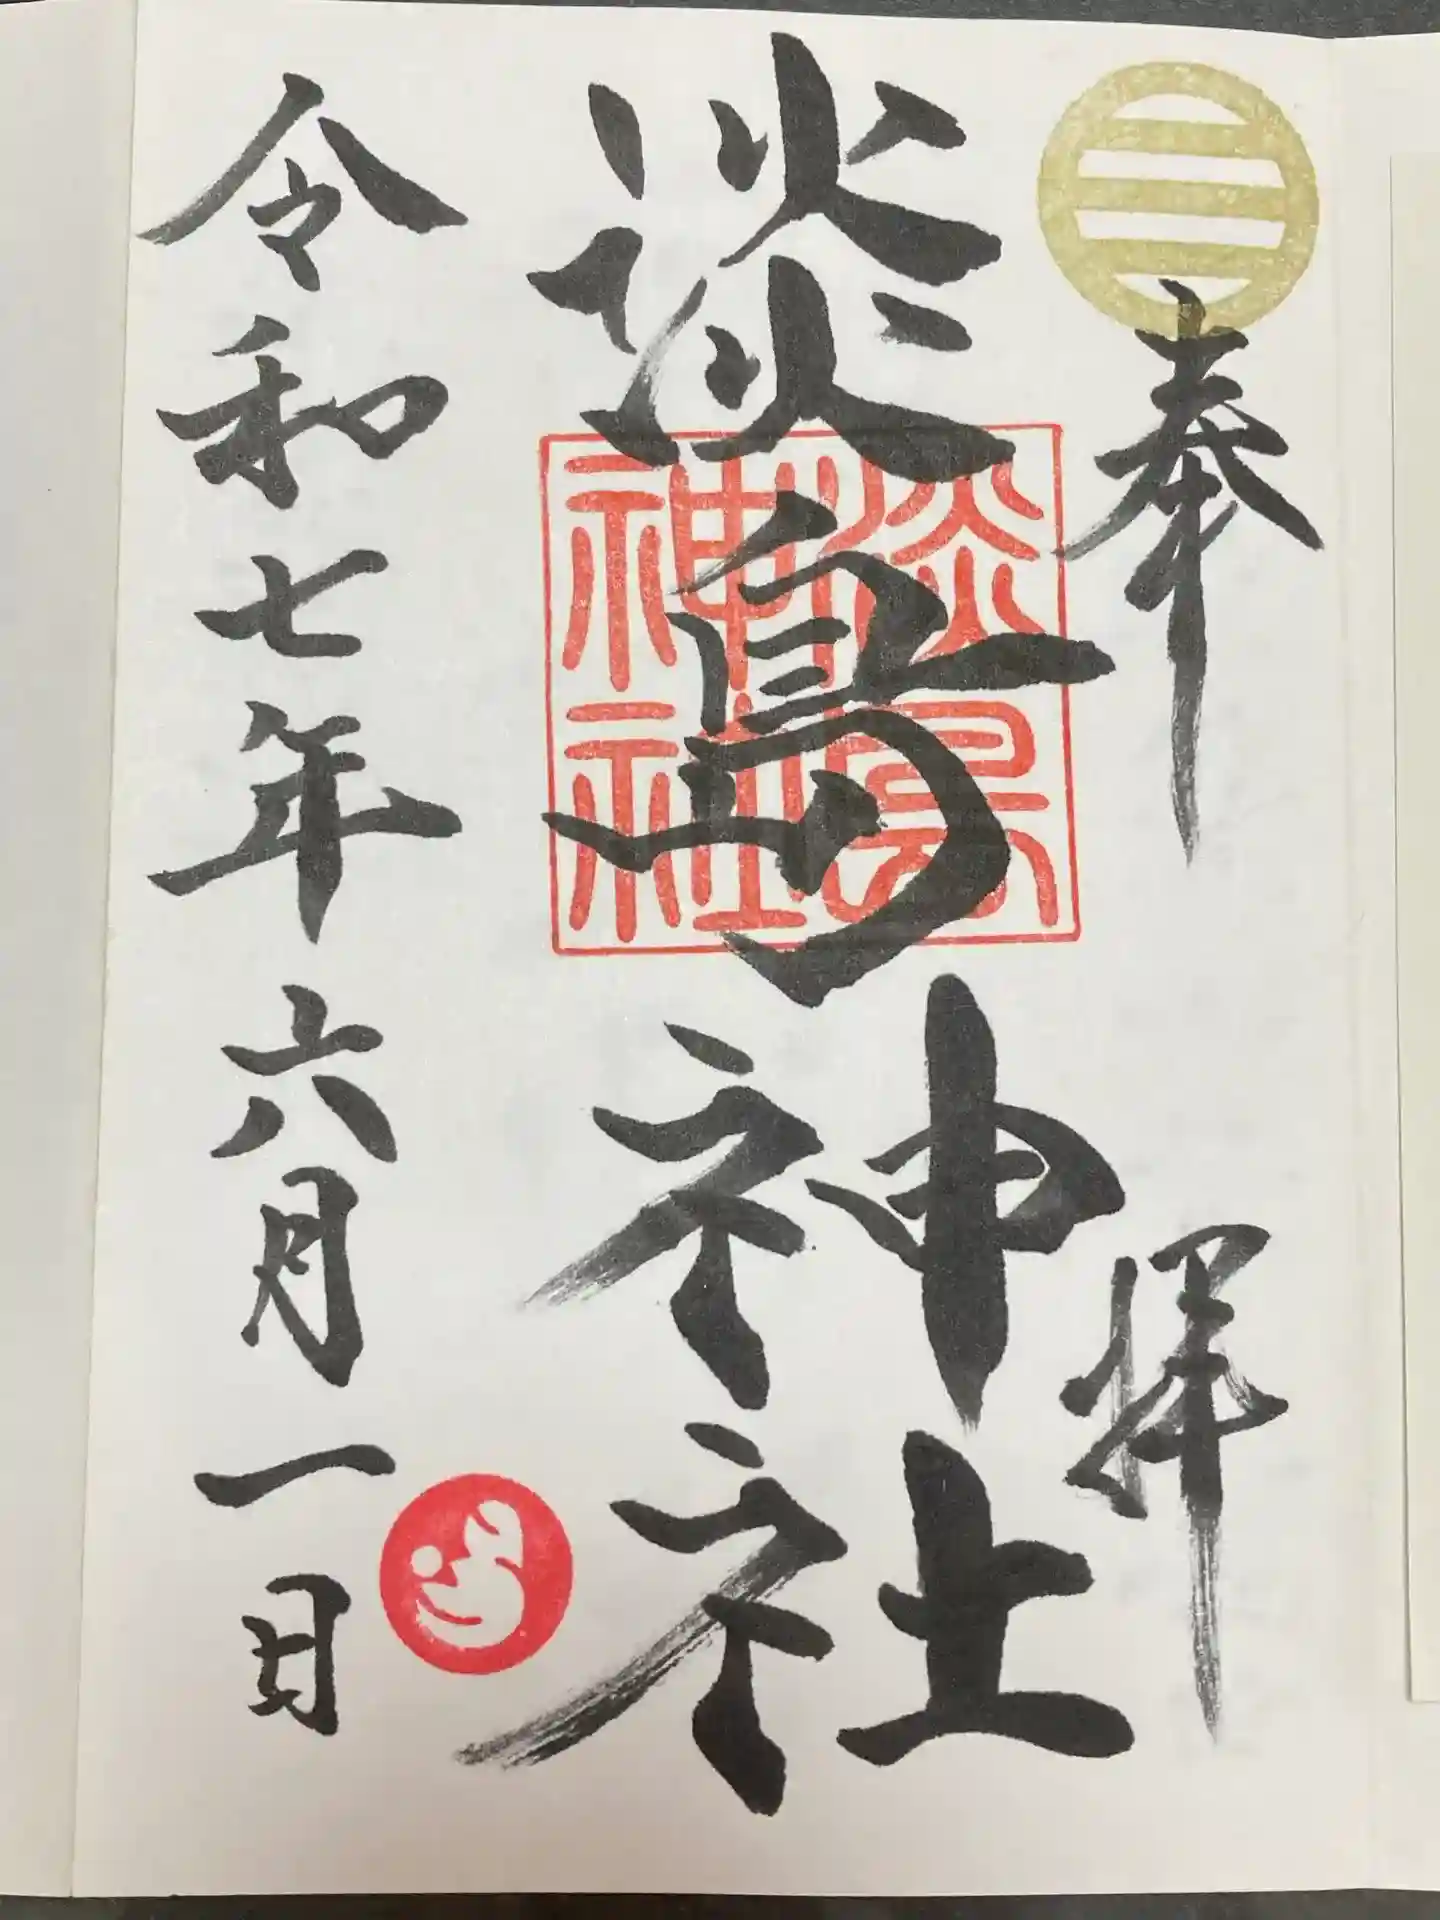 奉拝
淡嶋神社
淡島神社
令和七年六月一日